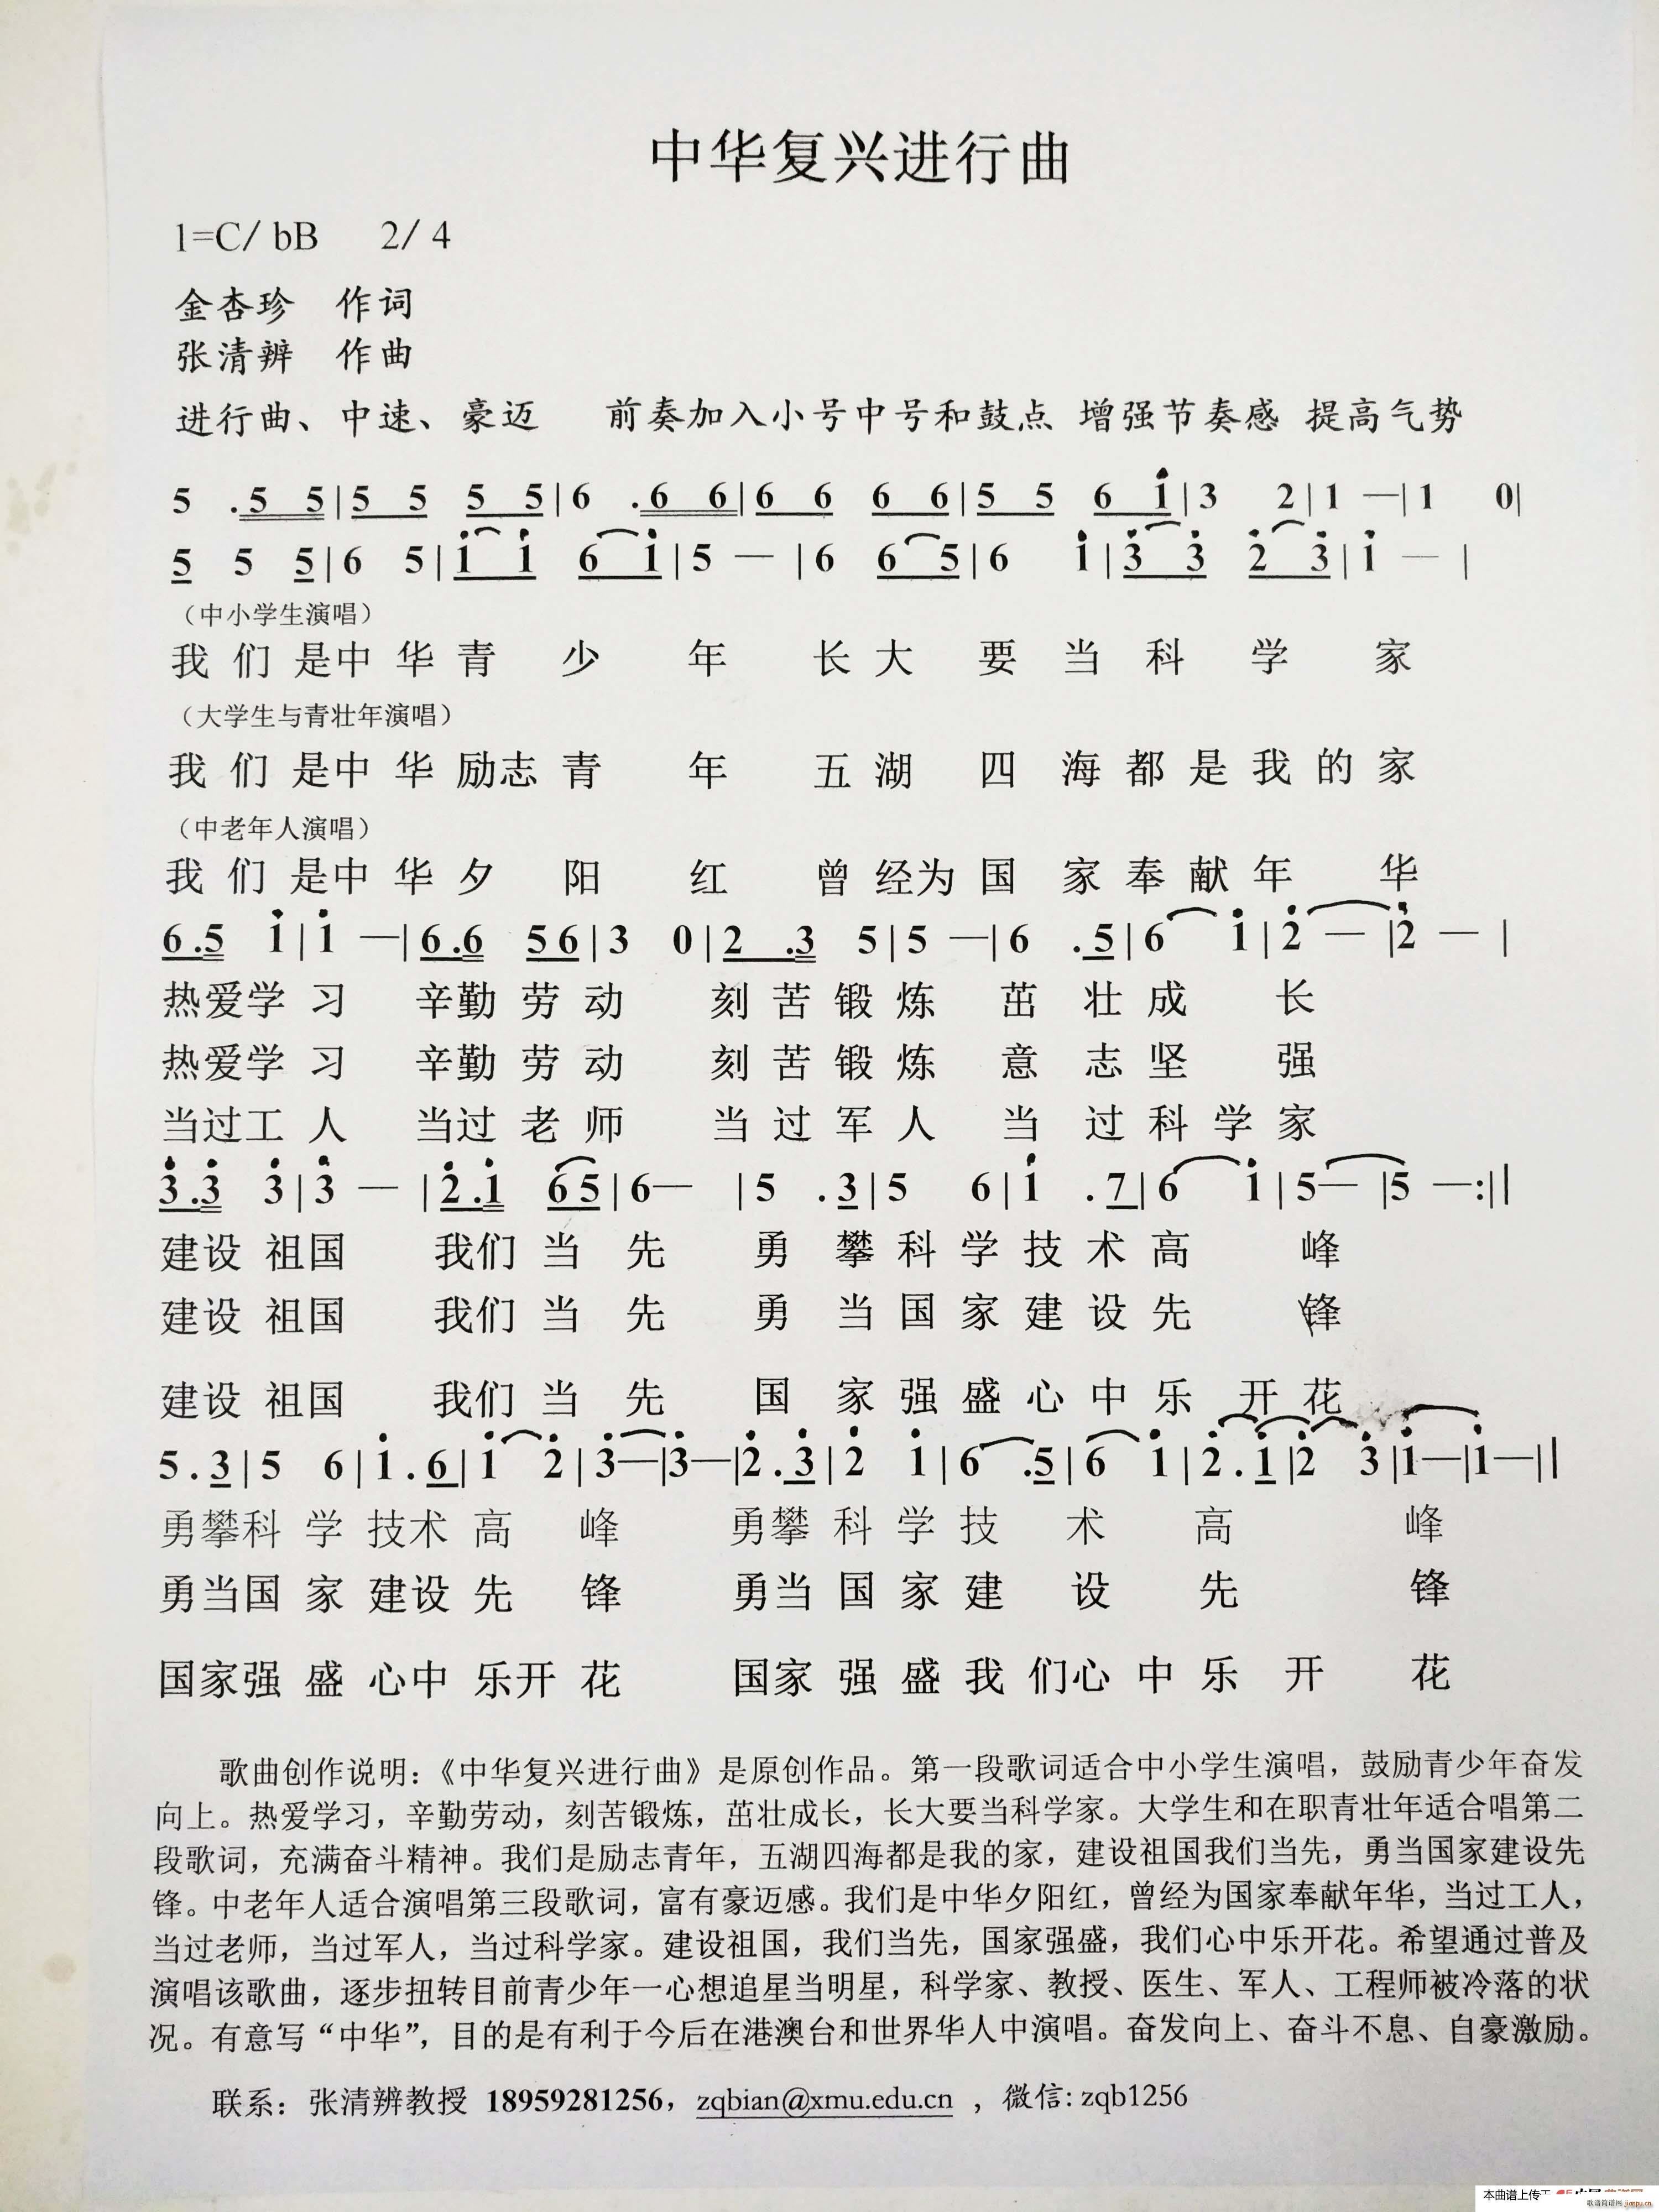 中华复兴进行曲
1=C/ bB 2/ 4
金杏珍 作词
张清辨 作曲
进行曲、中速、豪迈 前奏加入小号中号和鼓点 增强节奏感 提高气势
5 .5 5|5 5 5 5|6 .6 6|6 6 6 6|5 5 6 i|3 2|1 —|1 0|
5 5 5|6 5|i i 6 i|5 — |6 6 5|6 i|3 3 2 3|i — |
（中小学生演唱）
我 们 是中 华 青 少 年 长 大 要 当 科 学 家
（大学生与青壮年演唱）
我 们 是中 华 励志 青 年 五 湖 四 海 都 是 我 的 家
（中老年人演唱）
我 们 是中 华 夕 阳 红 曾 经为 国 家 奉 献 年 华
6.5 i|i —|6.6 56|3 0|2 .3 5|5 —|6 .5|6 i|2 — |2 — |
热爱学 习 辛勤 劳 动 刻 苦 锻 炼 茁 壮 成 长
热爱学 习 辛勤 劳 动 刻 苦 锻 炼 意 志 坚 强
当过工 人 当过 老 师 当 过 军 人 当 过 科 学 家
3.3 3|3 — |2.i 65|6— |5 .3|5 6|i .7|6 i|5— |5 —:||
建设 祖国 我们 当 先 勇 攀 科 学 技 术 高 峰
建设 祖国 我们 当 先 勇 当 国 家 建 设 先 锋
建设 祖国 我们 当 先 国 家 强 盛 心 中 乐 开 花
5.3|5 6|i.6|i 2|3—|3—|2.3|2 i|6 .5|6 i|2.i|2 3|i—|i—||
勇攀科 学 技术 高 峰 勇攀 科 学 技 术 高 峰
勇当国 家 建设 先 锋 勇当 国 家 建 设 先 锋
国家强 盛 心中 乐开 花 国家 强 盛 我 们心 中 乐 开 花
歌曲创作说明：《中华复兴进行曲》是原创作品。第一段歌词适合中小学生演唱，鼓励青少年奋发
向上。热爱学习，辛勤劳动，刻苦锻炼，茁壮成长，长大要当科学家。大学生和在职青壮年适合唱第二
段歌词，充满奋斗精神。我们是励志青年，五湖四海都是我的家，建设祖国我们当先，勇当国家建设先
锋。中老年人适合演唱第三段歌词，富有豪迈感。我们是中华夕阳红，曾经为国家奉献年华，当过工人，
当过老师，当过军人，当过科学家。建设祖国，我们当先，国家强盛，我们心中乐开花。希望通过普及
演唱该歌曲，逐步扭转目前青少年一心想追星当明星，科学家、教授、医生、军人、工程师被冷落的状
况。有意写“中华”，目的是有利于今后在港澳台和世界华人中演唱。奋发向上、奋斗不息、自豪激励。
联系：张清辨教授 18959281256，zqbian@xmu.edu.cn ，微信: zqb1256
本曲谱上传于
歌谱简谱网 jianpu.cn